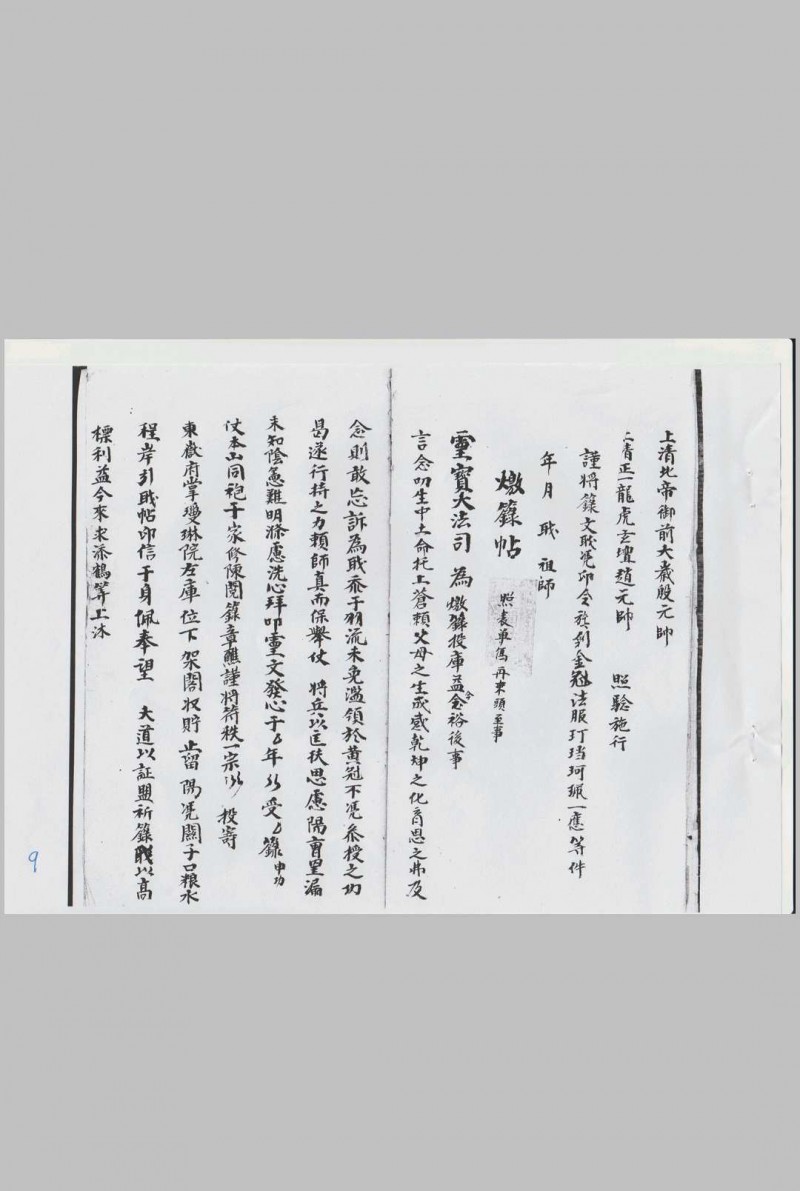 上清北帝御前大歲殷元帥
上清正一龍虎玄壇趙元帥　照驗施行
謹將籙文職凴印令發到金冠法服玎珰珂珮一應等件
年月　職　祖師
燉籙帖　照表单馮再來頭至事
靈寳大法司　為燉籙授庫益今裕後事
言念叨生中土命托上蒼頼父母之生成感乾坤之化育思之弗及
念則敢忘訴為職忝于羽流未免濫領於黄冠不凴叅授之功
曷遂行持之力頼師真而保舉仗　將兵以匡扶思慮陽育罡漏
未知陰愆難明滌慮洗心拜叩靈文發心于厶年以受厶籙申功
仗本山同袍于家修陳閱籙章醮謹將符秩一宗以　投寄
東嶽府掌瓊琳院左庫位下架閣收貯止留陽凴關子口粮水
程岸引職帖印信于身佩奉望　大道以証盟祈籙職以高
標利益今來求添鶴筭上沐
9